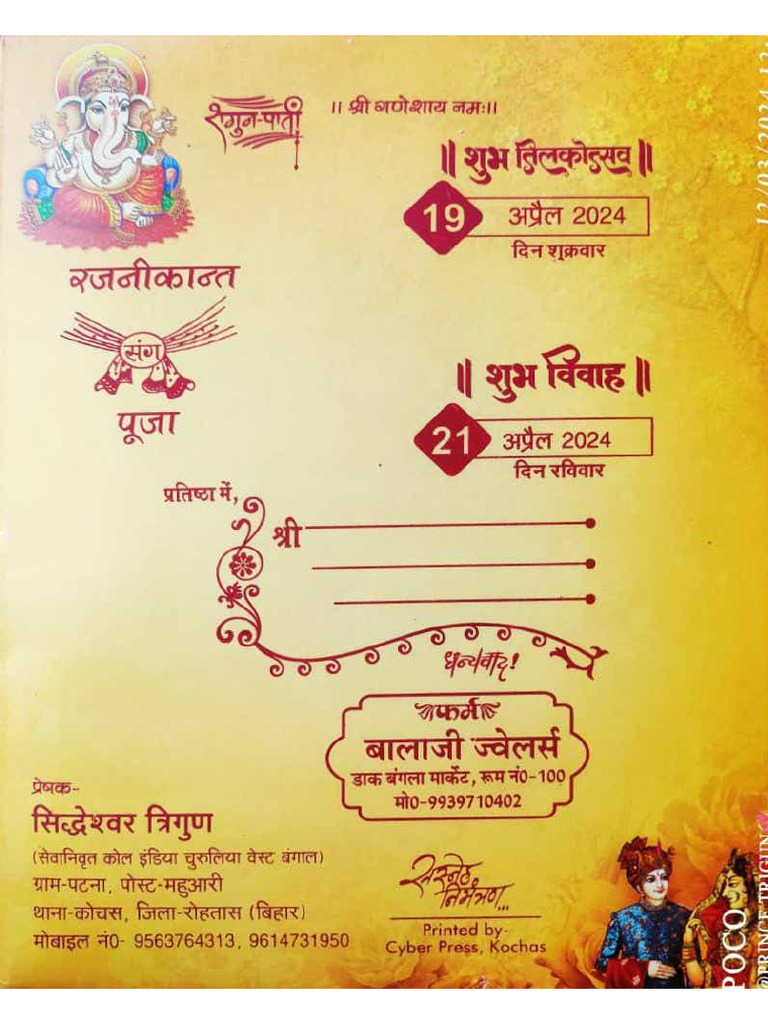 शगुन-पाती
।। श्री गणेशाय नमः।।
॥ शुभ तिलकोत्सव ॥
19 अप्रैल 2024
दिन शुक्रवार
रजनीकान्त
संग
पूजा
॥ शुभ विवाह ॥
21 अप्रैल 2024
दिन रविवार
प्रतिष्ठा में,
श्री
धन्यवाद!
फर्म
बालाजी ज्वेलर्स
डाक बंगला मार्केट, रूम नं0-100
मो0-9939710402
प्रेषक-
सिद्धेश्वर त्रिगुण
(सेवानिवृत कोल इंडिया चुरुलिया वेस्ट बंगाल)
ग्राम-पटना, पोस्ट-महुआरी
थाना-कोचस, जिला-रोहतास (बिहार)
मोबाइल नं0- 9563764313, 9614731950
सस्नेह
निमंत्रण...
Printed by-
Cyber Press, Kochas
POCO
@PRINCE TRIGUN
12/03/2024